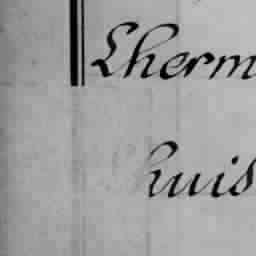 Lherm
huis